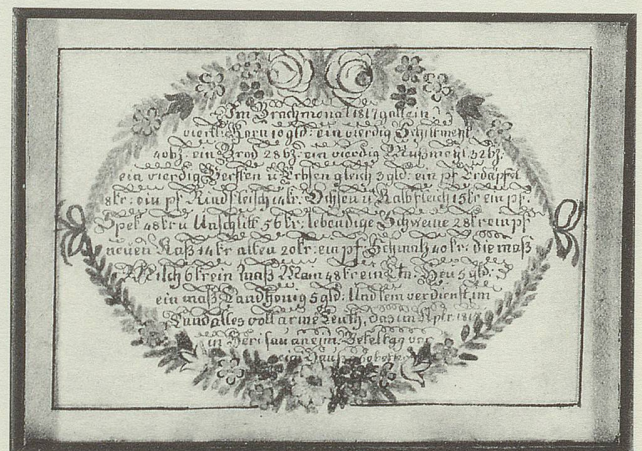 Im Brachmonat 1817 galt ein
viertl Korn 10 gld: ein vierdig Schiltmehl
40 bz: ein Brod 28 bz: ein vierdig Mußmehl 52 bz:
ein vierdig Gersten u Erbsen gleich 3 gld: ein pf Erdäpfel
8 kr: ein pf. Rindfleisch 14 kr. Ochsen u Kalbfleich 15 kr ein pf:
Spek 48 kr u Unschlitt 56 kr: lebendige Schweine 28 kr ein pf
neuen Käß 14 kr alten 20 kr: ein pf. Schmalz 40 kr: die maß
Milch 6 kr ein maß Wein 48 kr ein Ctn. Heu 5 gld:
ein maß Landhonig 5 gld: Und kein verdienst, im
Land alles voll arme Leuth, das im
in Herisau an eim Betteltag vor
ein Hauß